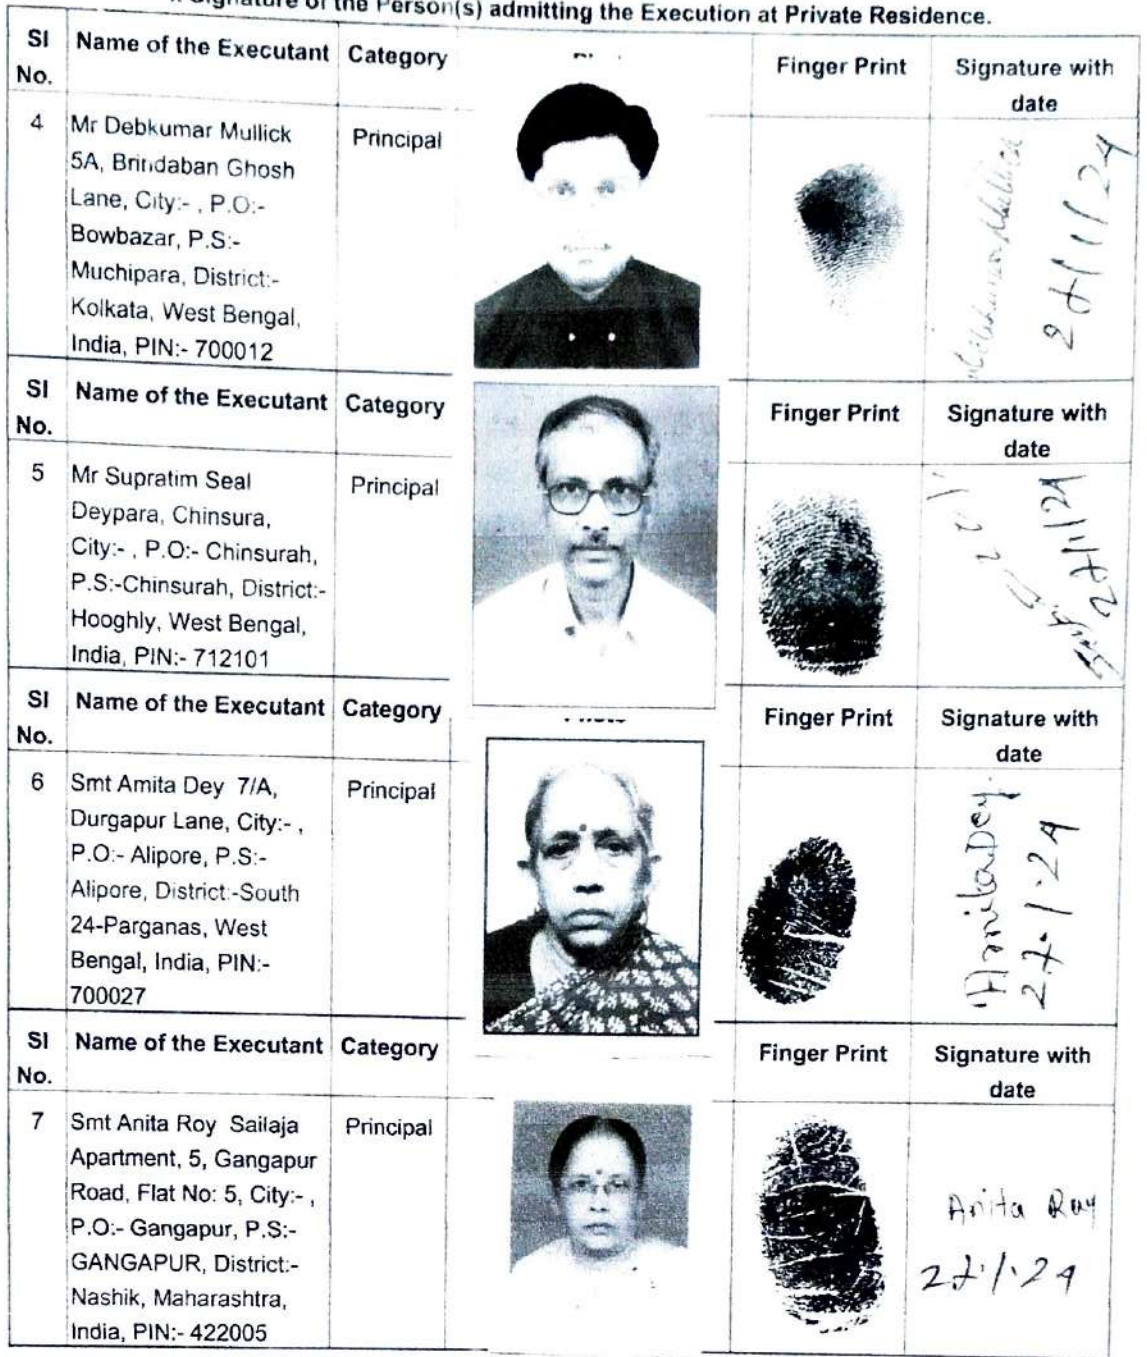 Signature of the Person(s) admitting the Execution at Private Residence.
SI No. Name of the Executant Category Finger Print Signature with date
4 Mr Debkumar Mullick Principal
5A, Brindaban Ghosh
Lane, City:- , P.O:-
Bowbazar, P.S:-
Muchipara, District:-
Kolkata, West Bengal,
India, PIN:- 700012
27/1/24
SI No. Name of the Executant Category Finger Print Signature with date
5 Mr Supratim Seal Principal
Deypara, Chinsura,
City:- , P.O:- Chinsurah,
P.S:-Chinsurah, District:-
Hooghly, West Bengal,
India, PIN:- 712101
27/1/24
SI No. Name of the Executant Category Photo Finger Print Signature with date
6 Smt Amita Dey 7/A, Principal
Durgapur Lane, City:- ,
P.O:- Alipore, P.S:-
Alipore, District:-South
24-Parganas, West
Bengal, India, PIN:-
700027
Amita Dey.
27.1.24
SI No. Name of the Executant Category Finger Print Signature with date
7 Smt Anita Roy Sailaja Principal
Apartment, 5, Gangapur
Road, Flat No: 5, City:- ,
P.O:- Gangapur, P.S:-
GANGAPUR, District:-
Nashik, Maharashtra,
India, PIN:- 422005
Anita Roy
27.1.24